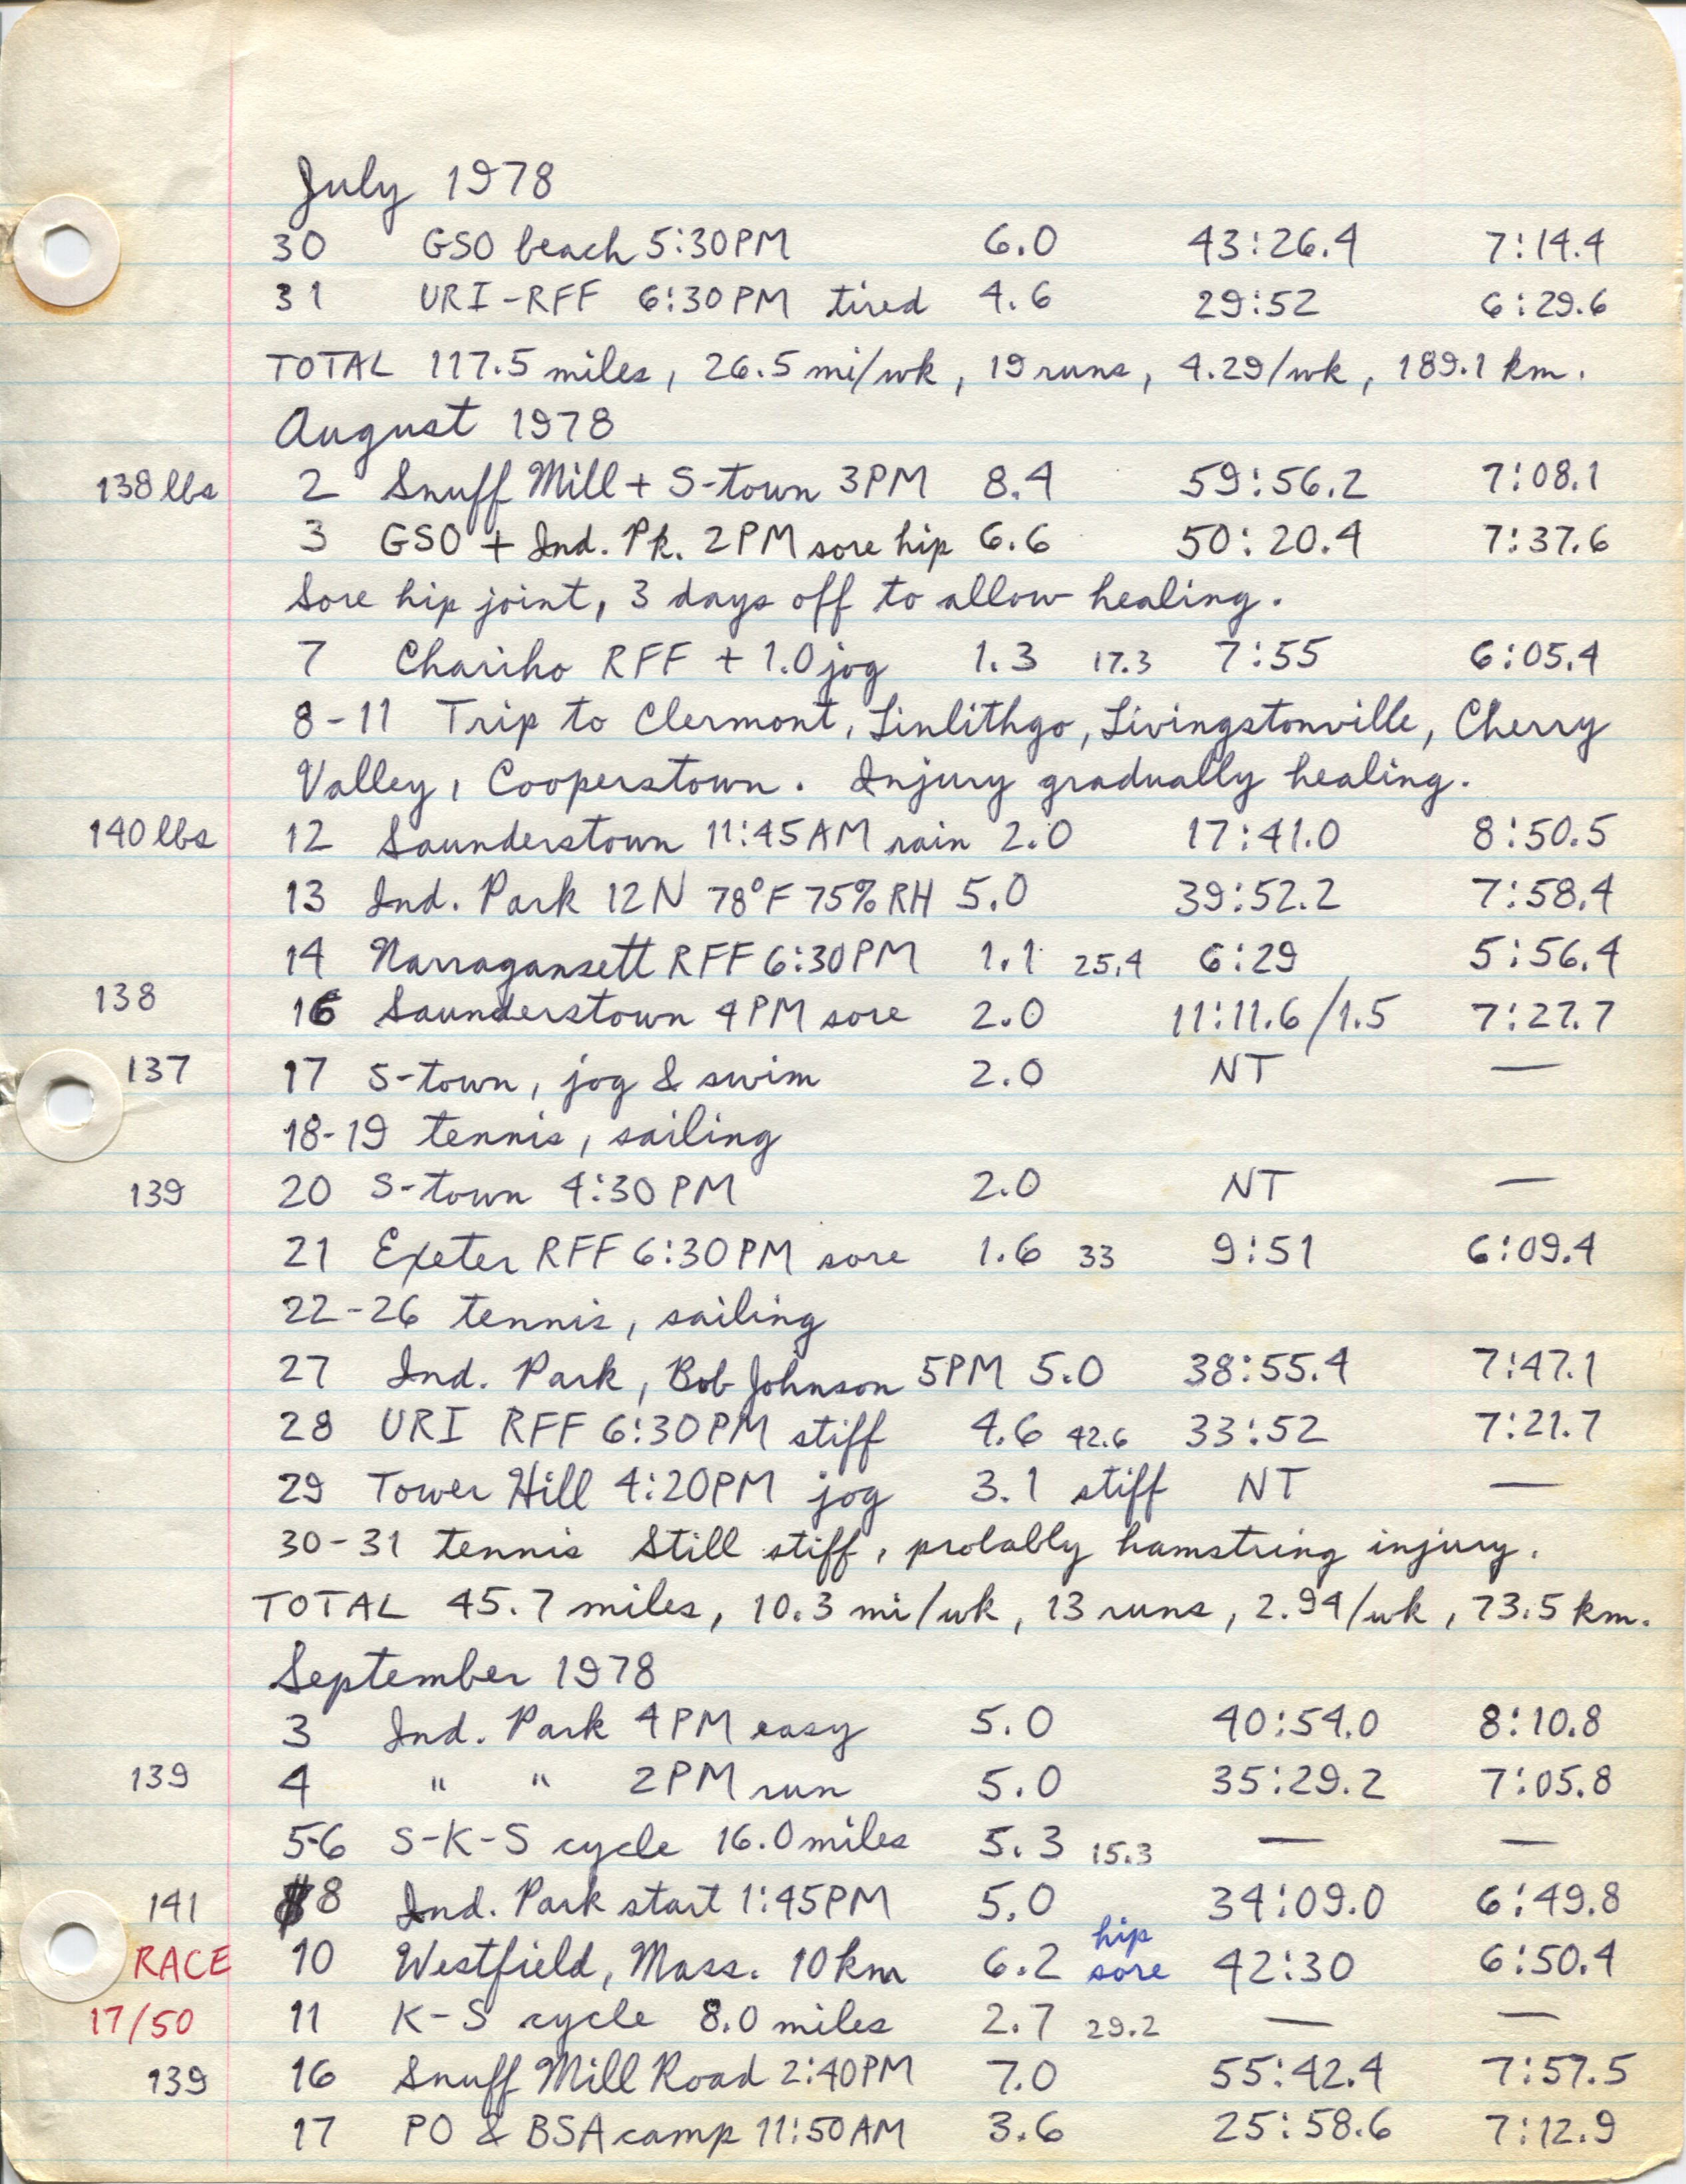 July 1978
30 GSO beach 5:30PM 6.0 43:26.4 7:14.4
31 URI-RFF 6:30PM tired 4.6 29:52 6:29.6
TOTAL 117.5 miles, 26.5 mi/wk, 19 runs, 4.29/wk, 189.1 km.
August 1978
138 lbs 2 Snuff Mill + S-town 3PM 8.4 59:56.2 7:08.1
3 GSO + Ind. Pk. 2PM sore hip 6.6 50:20.4 7:37.6
Sore hip joint, 3 days off to allow healing.
7 Chariho RFF + 1.0 jog 1.3 17.3 7:55 6:05.4
8-11 Trip to Clermont, Linlithgo, Livingstonville, Cherry
Valley, Cooperstown. Injury gradually healing.
140 lbs 12 Saunderstown 11:45AM rain 2.0 17:41.0 8:50.5
13 Ind. Park 12N 78°F 75% RH 5.0 39:52.2 7:58.4
14 Narragansett RFF 6:30PM 1.1 25.4 6:29 5:56.4
138 16 Saunderstown 4PM sore 2.0 11:11.6/1.5 7:27.7
137 17 S-town, jog & swim 2.0 NT —
18-19 tennis, sailing
139 20 S-town 4:30 PM 2.0 NT —
21 Exeter RFF 6:30PM sore 1.6 33 9:51 6:09.4
22-26 tennis, sailing
27 Ind. Park, Bob Johnson 5PM 5.0 38:55.4 7:47.1
28 URI RFF 6:30PM stiff 4.6 42.6 33:52 7:21.7
29 Tower Hill 4:20PM jog 3.1 stiff NT —
30-31 tennis Still stiff, probably hamstring injury.
TOTAL 45.7 miles, 10.3 mi/wk, 13 runs, 2.94/wk, 73.5 km.
September 1978
3 Ind. Park 4PM easy 5.0 40:54.0 8:10.8
139 4 " " 2PM run 5.0 35:29.2 7:05.8
5-6 S-K-S cycle 16.0 miles 5.3 15.3 — —
141 8 Ind. Park start 1:45PM 5.0 34:09.0 6:49.8
RACE 10 Westfield, Mass. 10 km 6.2 hip sore 42:30 6:50.4
17/50 11 K-S cycle 8.0 miles 2.7 29.2 — —
139 16 Snuff Mill Road 2:40PM 7.0 55:42.4 7:57.5
17 PO & BSA camp 11:50AM 3.6 25:58.6 7:12.9